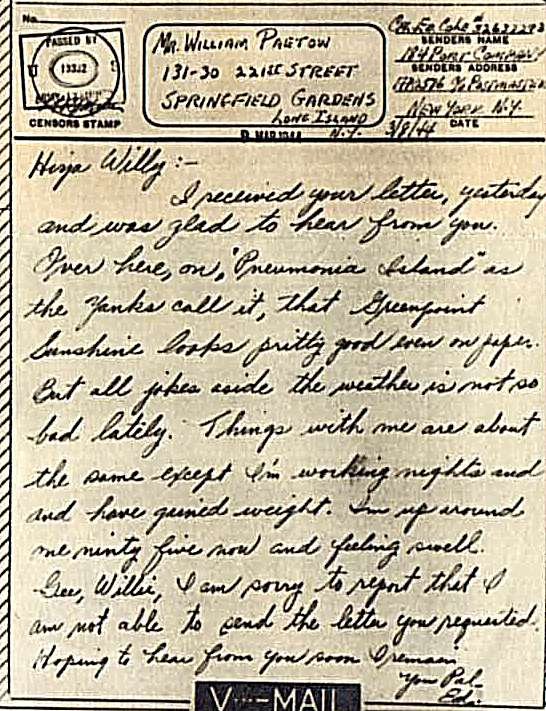 No.
PASSED BY
U S
CENSORS STAMP
Mr. WILLIAM PAETOW
131-30 221st STREET
SPRINGFIELD GARDENS
LONG ISLAND
N.Y.
SENDERS NAME
184 PORT COMPANY
SENDERS ADDRESS
% POSTMASTER
NEW YORK N.Y.
DATE
3/8/44
Hiya Willy:-
I received your letter, yesterday
and was glad to hear from you.
Over here, on, "Pneumonia Island" as
the Yanks call it, that Greenpoint
Sunshine looks pritty good even on paper.
But all jokes aside the weather is not so
bad lately. Things with me are about
the same except I'm working nights and
and have gained weight. I'm up around
one ninty five now and feeling swell.
Gee, Willie, I am sorry to report that I
am not able to send the letter you requested.
Hoping to hear from you soon I remain
your Pal-
Ed.
V···-MAIL